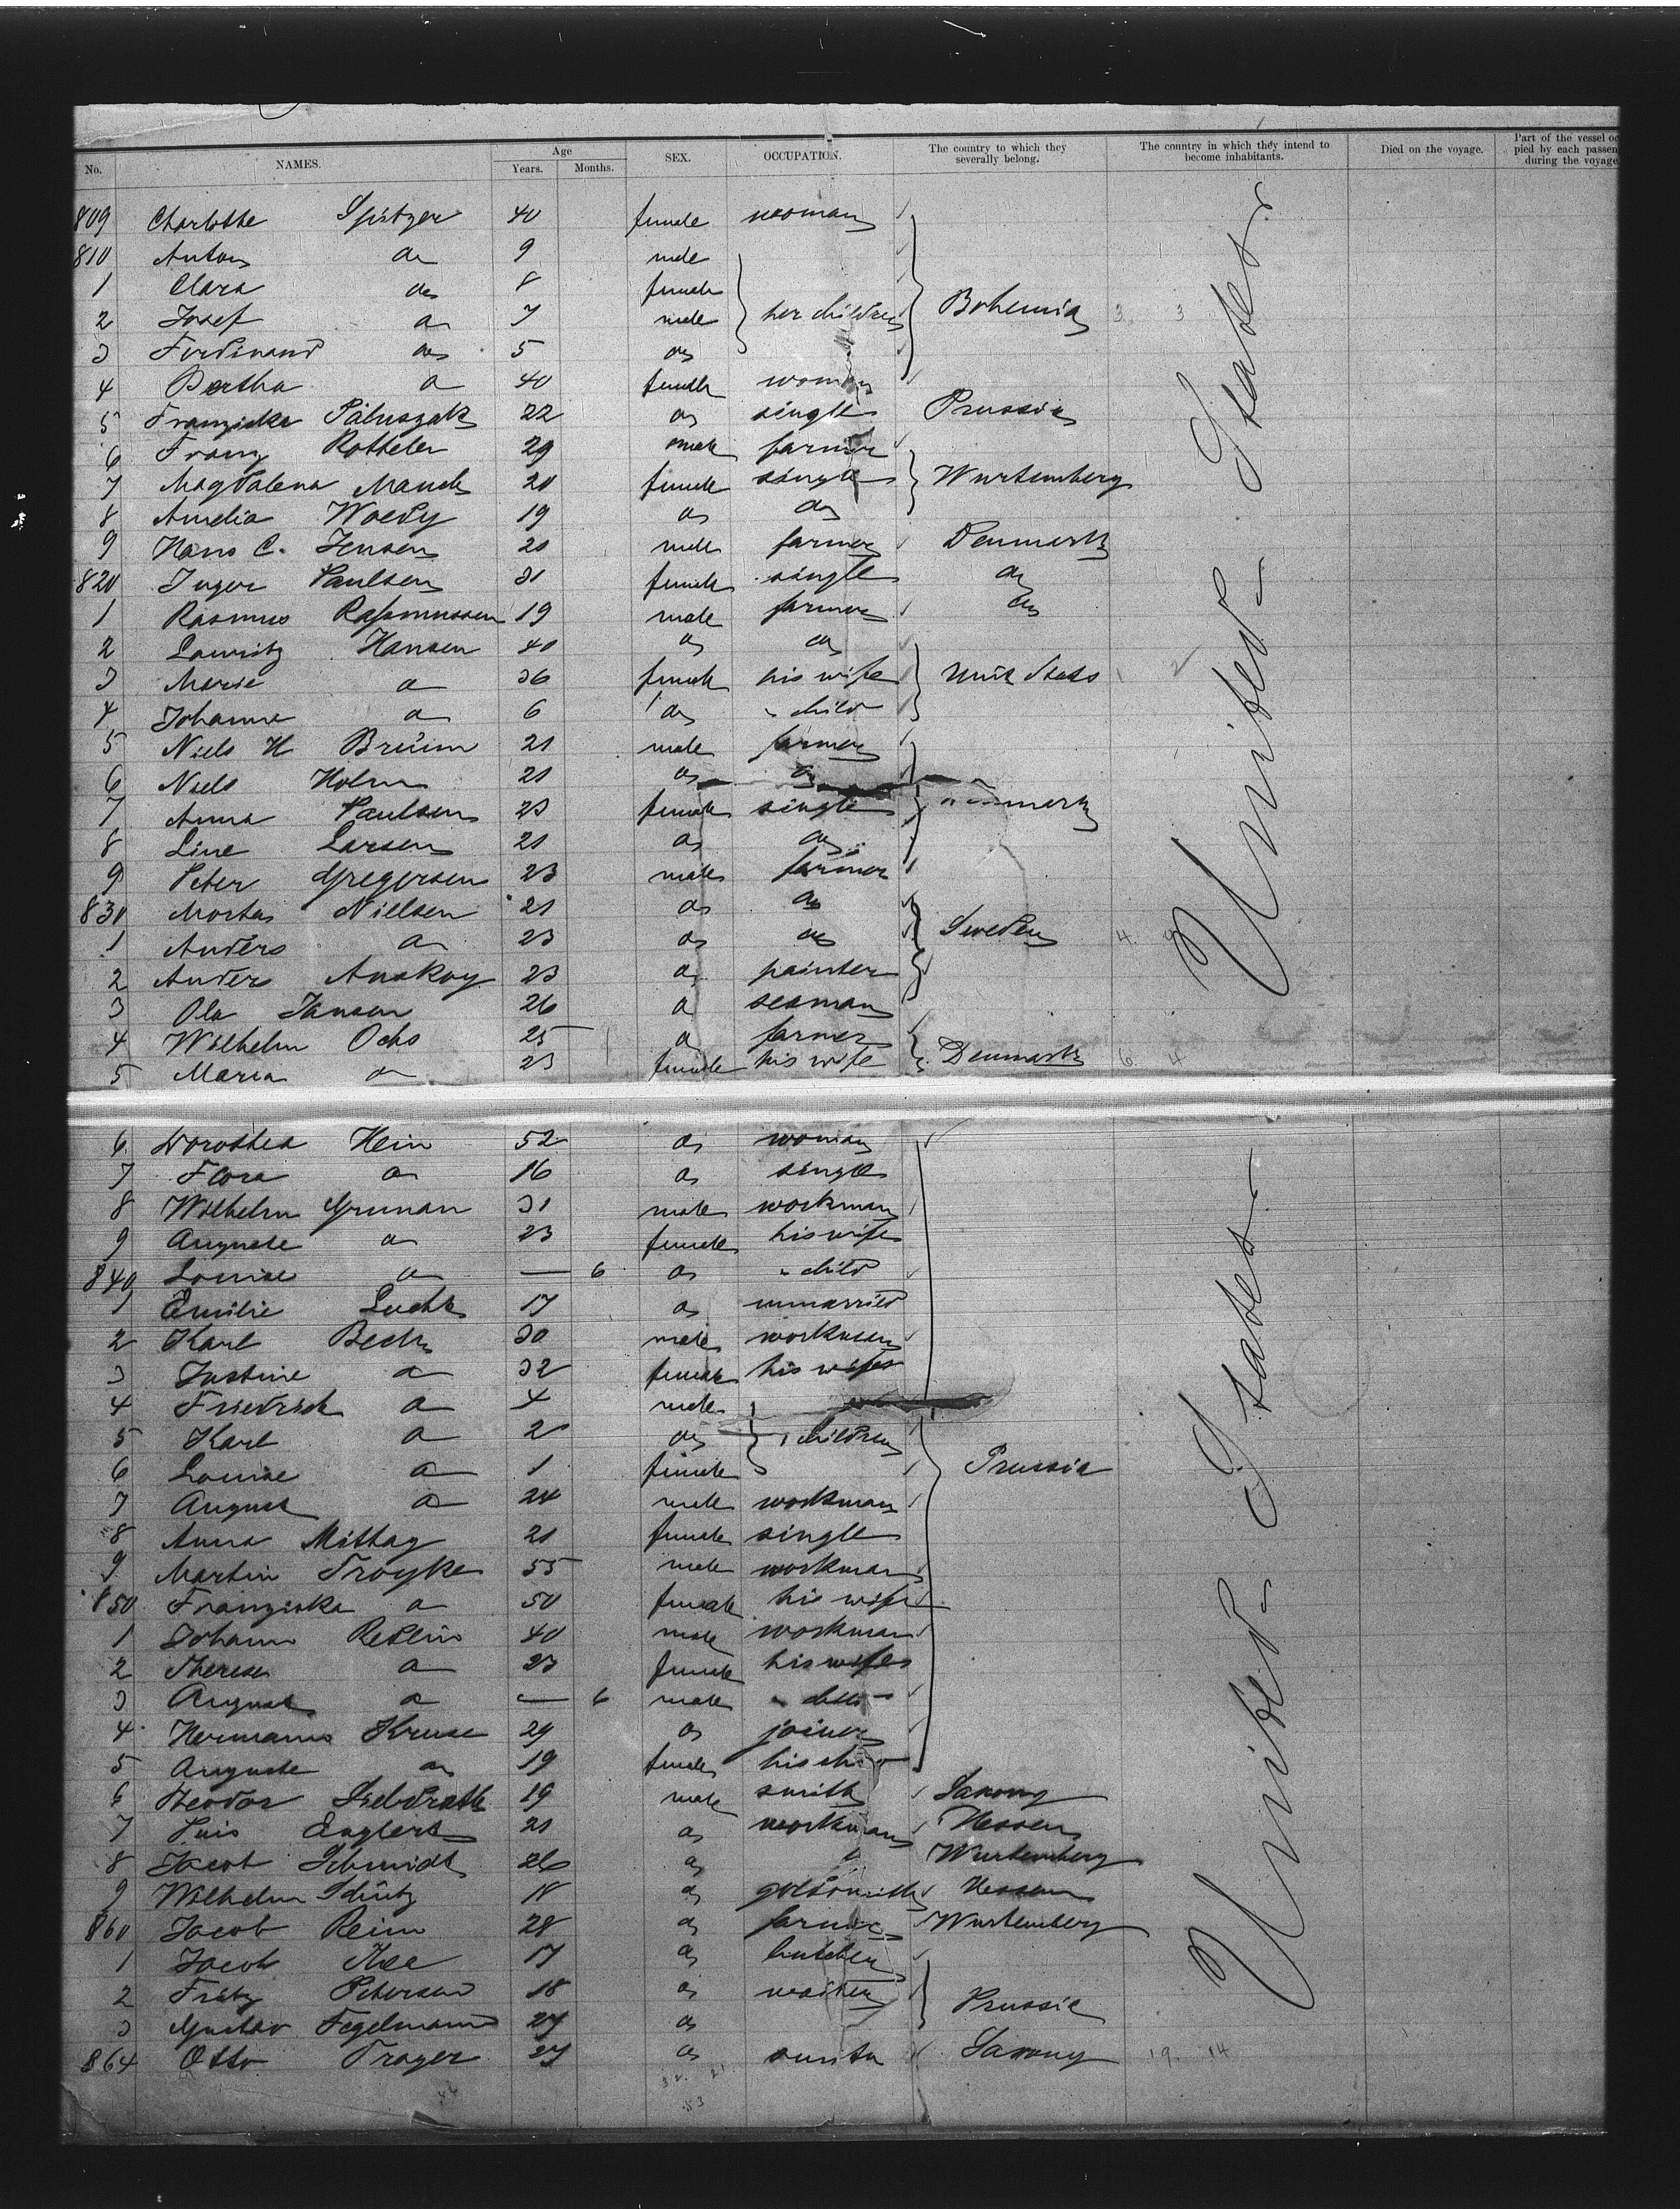 No. NAMES. Age Years. Months. SEX. OCCUPATION. The country to which they severally belong. The country in which they intend to become inhabitants. Died on the voyage. Part of the vessel oc pied by each passen during the voyage
809 Charlotte Spitzer 40 female woman
810 Anton do 9 male
1 Clara do 8 female
2 Josef do 7 male her children Bohemia 3 3
3 Ferdinand do 5 do
4 Bertha do 40 female woman
5 Franziska 22 do single Prussia
6 Franz Rotheler 29 male farmer
7 Magdalena Mauch 20 female single Wurtemberg
8 Amelia Woedy 19 do do
9 Hans C. Jensen 20 male farmer Denmark
820 Inger Paulsen 31 female single do
1 Rasmus Rasmussen 19 male farmer do
2 Lauritz Hansen 40 do do
3 Marie do 36 female his wife Unit States 1
4 Johanne do 6 do " child
5 Niels H Brüun 21 male farmer
6 Niels Holm 21 do do
7 Anna Paulsen 23 female single Denmark
8 Line Larsen 21 do do
9 Peter Gregersen 23 male farmer
830 Morten Nielsen 21 do do
1 Anders do 23 do do Sweden 4
2 Anders 23 do painter
3 Ola Jansen 26 do seaman
4 Wilhelm Ochs 25 do farmer
5 Maria do 23 female his wife Denmark 6 4
United States
6 Dorothea Hein 52 do woman
7 Flora do 16 do single
8 Wilhelm Grunau 31 male workman
9 Auguste do 23 female his wife
840 Louise do — 6 do " child
1 Emilie Lucht 17 do unmarried
2 Karl Bech 30 male workman
3 Justine do 32 female his wife
4 Friedrich do 4 male
5 Karl do 2 do " children
6 Louise do 1 female Prussia
7 August do 24 male workman
8 Anna Mittag 21 female single
9 Martin Troyke 55 male workman
850 Franziska do 50 female his wife
1 Johann Redlin 40 male workman
2 Therese do 23 female his wife
3 August do — 6 male " child
4 Hermann Kruse 29 do joiner
5 Auguste do 19 female his
6 Teodor 19 male smith Saxony
7 Luis Englert 21 do workman Hessen
8 Jacob Schmidt 26 do Wurtemberg
9 Wilhelm Schütz 18 do goldsmith Hessen
860 Jacob Reim 28 do farmer Wurtemberg
1 Jacob 17 do butcher
2 Fritz Petersen 18 do waiter Prussia
3 Gustav Fegelmann 27 do
864 Otto Trager 27 do Saxony 19. 14
United States
32. 21
53